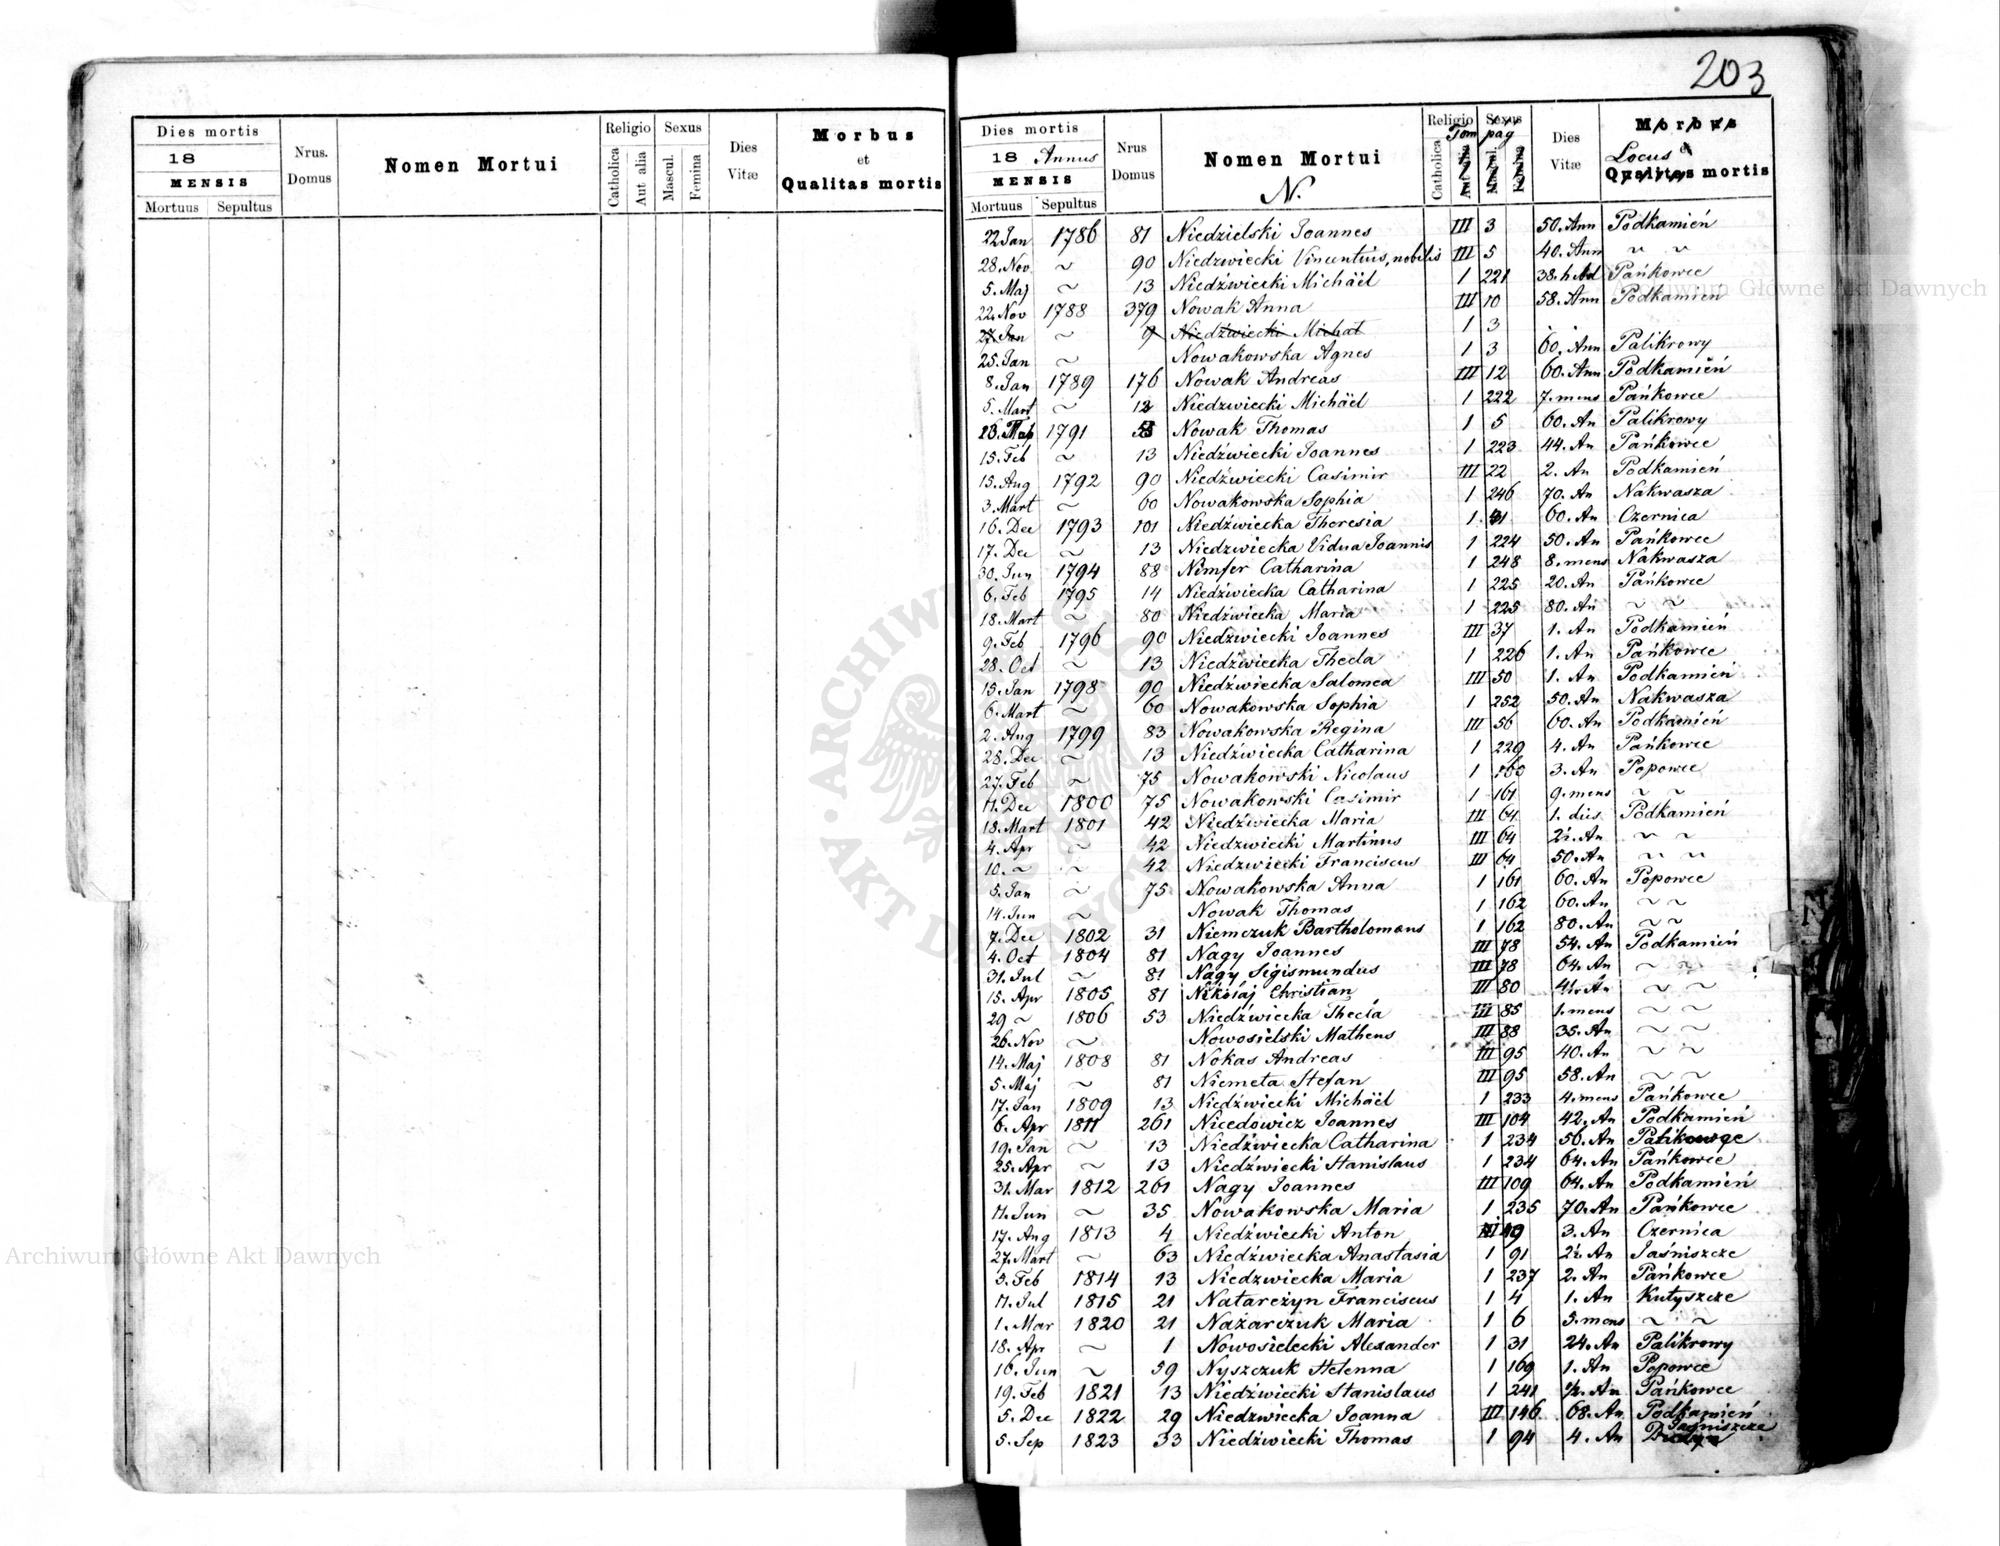 203
Dies mortis
18
MENSIS
Mortuus Sepultus
Nrus. Domus
Nomen Mortui
Religio
Catholica Aut alia
Sexus
Mascul. Femina
Dies Vitæ
Morbus
et
Qualitas mortis
Dies mortis
18 Annus
MENSIS
Mortuus Sepultus
Nrus Domus
Nomen Mortui
N.
Religio Tom
Catholica Aut alia
Sexus pag
Mascul. Femina
Dies Vitæ
Morbus
Locus et
Qualitas mortis
22 Jan 1786 81 Niedzielski Joannes III 3 50. Ann Podkamień
28. Nov ~ 90 Niedzwiecki Vincentius, nobilis III 5 40. Ann ~ ~
5. Maj ~ 13 Niedźwiecki Michäel 1 221 38. Pańkowce
22. Nov 1788 379 Nowak Anna III 10 58. Ann Podkamień
27. Jan ~ 9 Niedźwiecki Michał 1 3
25. Jan ~ Nowakowska Agnes 1 3 60. Ann Palikrowy
8. Jan 1789 176 Nowak Andreas III 12 60. Ann Podkamień
5. Mart ~ 12 Niedzwiecki Michäel 1 222 7. mens Pańkowce
1791 Nowak Thomas 1 5 60. An Palikrowy
15. Feb ~ 13 Niedźwiecki Joannes 1 223 44. An Pańkowce
15. Aug 1792 90 Niedźwiecki Casimir III 22 2. An Podkamień
3. Mart ~ 60 Nowakowska Sophia 1 246 70. An Nakwasza
16. Dec 1793 101 Niedźwiecka Theresia 1 60. An Czernica
17. Dec ~ 13 Niedzwiecka Vidua Joannis 1 224 50. An Pańkowce
30. Jun 1794 88 Nimfer Catharina 1 248 8. mens Nakwasza
6. Feb 1795 14 Niedźwiecka Catharina 1 225 20. An Pańkowce
18. Mart ~ 80 Niedzwiecka Maria 1 225 80. An ~ ~
9. Feb 1796 90 Niedźwiecki Joannes III 37 1. An Podkamień
28. Oct ~ 13 Niedźwiecka Thecla 1 226 1. An Pańkowce
15. Jan 1798 90 Niedźwiecka Salomea III 50 1. An Podkamień
6. Mart ~ 60 Nowakowska Sophia 1 252 50. An Nakwasza
2. Aug 1799 83 Nowakowska Regina III 56 60. An Podkamień
28. Dec ~ 13 Niedźwiecka Catharina 1 229 4. An Pańkowce
27. Feb ~ 75 Nowakowski Nicolaus 1 160 3. An Popowce
11. Dec 1800 75 Nowakowski Casimir 1 161 9. mens ~ ~
13. Mart 1801 42 Niedźwiecka Maria III 64 1. dies Podkamień
4. Apr ~ 42 Niedzwiecki Martinus III 64 2½. An ~ ~
10. ~ ~ 42 Niedzwiecki Franciscus III 64 50. An ~ ~
5. Jan ~ 75 Nowakowska Anna 1 161 60. An Popowce
14. Jun ~ Nowak Thomas 1 162 60. An ~ ~
7. Dec 1802 31 Niemczuk Bartholomæus 1 162 80. An ~ ~
4. Oct 1804 81 Nagy Joannes III 78 54. An Podkamień
31. Jul ~ 81 Nagy Sigismundus III 78 64. An ~ ~
15. Apr 1805 81 Nikołaj Christian III 80 4½. An ~ ~
29 ~ 1806 53 Niedźwiecka Thecla III 85 1. mens ~ ~
26. Nov ~ Nowosielski Matheus III 88 35. An ~ ~
14. Maj 1808 81 Nokas Andreas III 95 40. An ~ ~
5. Maj ~ 81 Niemeta Stefan III 95 58. An ~ ~
17. Jan 1809 13 Niedźwiecki Michäel 1 233 4. mens Pańkowce
6. Apr 1811 261 Nicedowicz Joannes III 104 42. An Podkamień
19. Jan ~ 13 Niedźwiecka Catharina 1 234 56. An
25. Apr ~ 13 Niedźwiecki Stanislaus 1 234 64. An Pańkowce
31. Mar 1812 261 Nagy Joannes III 109 64. An Podkamień
11. Jun ~ 35 Nowakowska Maria 1 235 70. An Pańkowce
17. Aug 1813 4 Niedźwiecki Anton 3. An Czernica
27. Mart ~ 63 Niedźwiecka Anastasia 1 91 2½. An Jaśniszcze
5. Feb 1814 13 Niedzwiecka Maria 1 237 2. An Pańkowce
11. Jul 1815 21 Natarczyn Franciscus 1 4 1. An Kutyszcze
1. Mar 1820 21 Nazarczuk Maria 1 6 5. mens ~ ~
18. Apr ~ 1 Nowosielecki Alexander 1 31 24. An Palikrowy
16. Jun ~ 59 Nyszczuk Helenna 1 169 1. An Popowce
19. Feb 1821 13 Niedźwiecki Stanislaus 1 241 ½. An Pańkowce
5. Dec 1822 29 Niedzwiecka Joanna III 146 68. An Podkamień
5. Sep 1823 33 Niedźwiecki Thomas 1 94 4. An Jaśniszcze
Archiwum Główne Akt Dawnych
Archiwum Główne Akt Dawnych